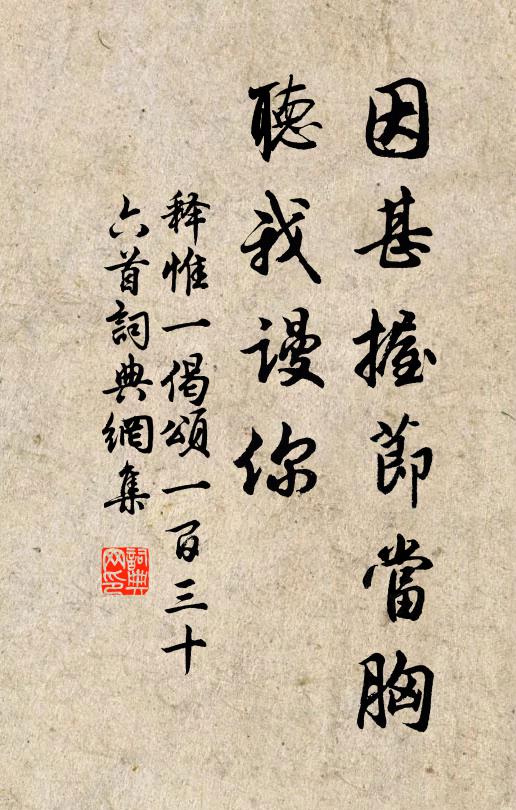 因甚握節當胸
聽我謾你
释惟一偈頌一百三十
六首詞典網集
詞典網印